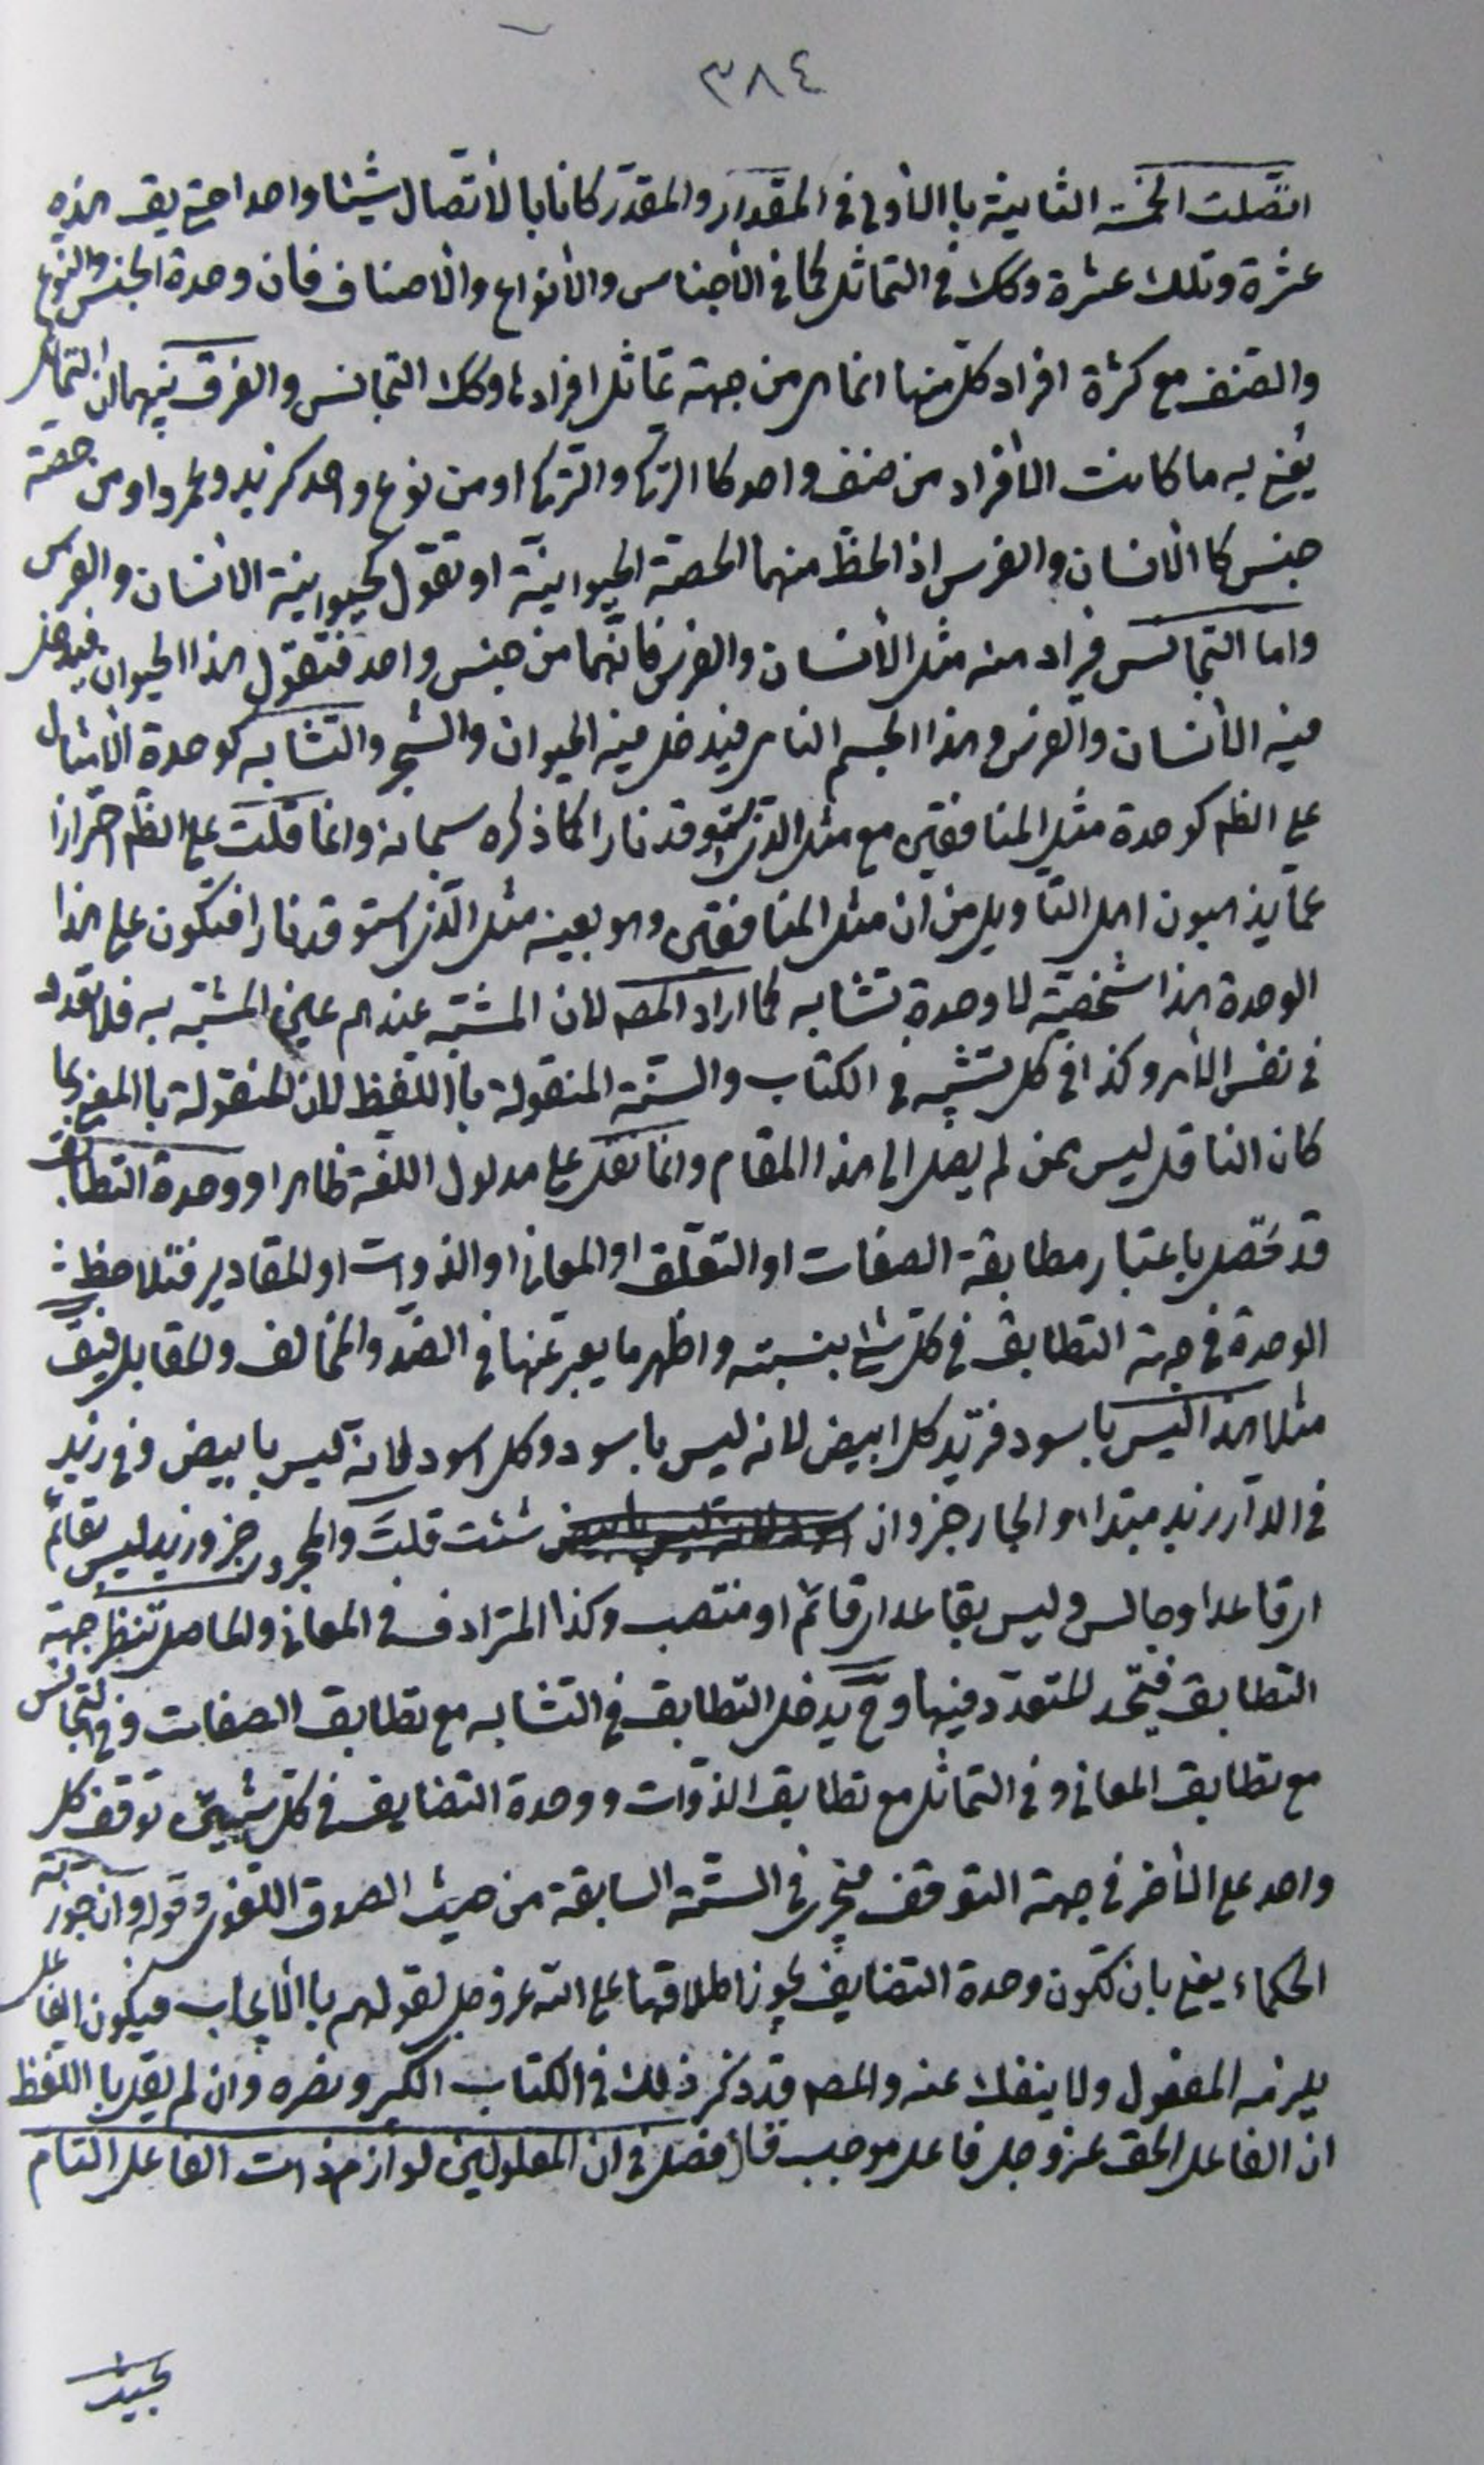 ٣٨٤
اتصلت الخمسة الثانية باالأولى في المقدار والمقدر كانا باالأتصال شيئا واحدا حتى يق هذه
عشرة وتلك عشرة وكك في التماثل كما في الأجناس والأنواع والأصناف فان وحدة الجنس والنوع
والصنف مع كثرة افراد كل منها انما هي من جهة تماثل افرادها وكك التجانس والفرق بينهما ان التماثل
يعنى به ما كانت الأفراد من صنف واحد كا التركي والتركي او من نوع واحد كزيد وعمرو او من حصة
جنس كا الأنسان والفرس اذ الحظ منهما الحصة الحيوانية او تقول كحيوانية الأنسان والفرس
واما التجانس فيراد منه مثل الأنسان والفرس فانهما من جنس واحد فتقول هذا الحيوان فيدخل
فيه الأنسان والفرس وهذا الجسم النامي فيدخل فيه الحيوان والشجر والتشابه كوحدة الأمثال
على الظم كوحدة مثل المنافقين مع مثل الذي استوقد نارا كما ذكره سبحانه وانما قلت على الظم احترازا
عما يذهبون اهل التأويل من ان مثل المنافقين وهو بعينه مثل الذي استوقد نارا فتكون على هذا
الوحدة هذا شخصية لا وحدة تشابه كما اراد المصـ لان المشبه عندهم عين المشبه به فلا تعدد
في نفس الأمر وكذا في كل تشبيه في الكتاب والسنة المنقولة باا للفظ لان المنقولة باالمعنى ربما
كان الناقل ليس ممن لم يصل الى هذا المقام وانما نقل على مدلول اللغة ظاهرا ووحدة التطابق
قد تحصل باعتبار مطابقة الصفات او التعلق او المعاني او الذوات او المقادير فتلاحظ
الوحدة في جهة التطابق في كل شئ بنسبته واظهر ما يعبر عنها في الضد والمخالف والمقابل فيق
مثلا هذا ليس باسود فتريد كل ابيض لانه ليس باسود وكل اسود لانه ليس بابيض وفي زيد
في الدار زيد مبتداء والجار خبر وان شئت قلت والمجرور خبر وزيد ليس بقائم
اي قاعد او جالس وليس بقاعد اي قائم او منتصب وكذا المترادف في المعاني والحاصل تنظر جهة
التطابق فيتحد المتعدد فيها وح يدخل التطابق في التشابه مع تطابق الصفات وفي التجانس
مع تطابق المعاني وفي التماثل مع تطابق الذوات ووحدة التضايف في كل شيئين توقف كل
واحد على الأخر في جهة التوقف فيجرى في الستة السابقة من حيث الصدق اللغوي وقوله وان جوزته
الحكماء يعني بان تكون وحدة التضايف يجوز اطلاقها على الله عز وجل لقولهم باالأيجاب فيكون الفاعل
يلزمه المفعول ولا ينفك عنه والمصـ قد ذكر ذلك في الكتاب الكبير ونصره وان لم يقل باا للفظ
ان الفاعل الحق عز وجل فاعل موجب قال فصل في ان المعلولين لوازم ذات الفاعل التام
بحيث